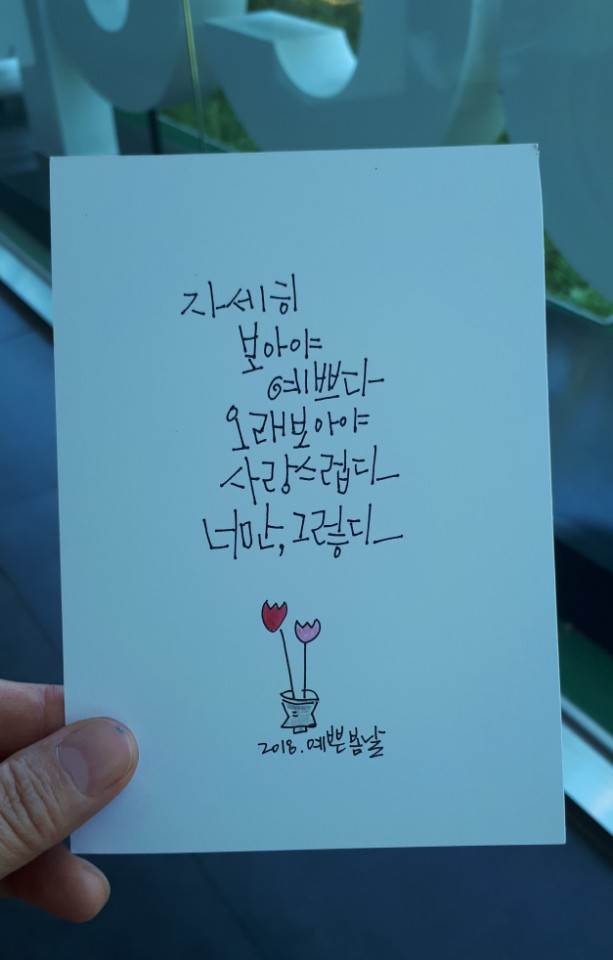 자세히
보아야
예쁘다
오래보아야
사랑스럽다
너만, 그렇다
2018. 예쁜 봄날